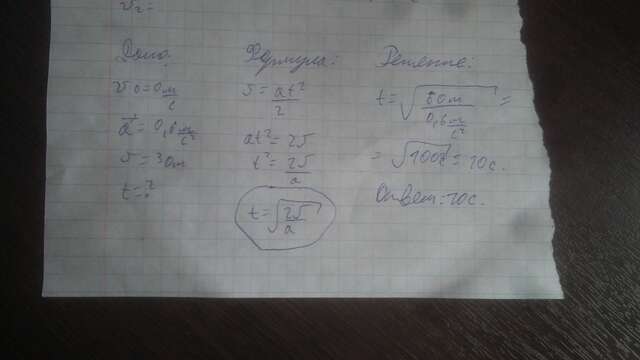 v₂ =
Дано
v₀ = 0 м/с
a = 0,6 м/с²
S = 30 м
t = ?
Формулы:
S = at²/2
at² = 2S
t² = 2S/a
t = √(2S/a)
Решение:
t = √(60 м / 0,6 м/с²) =
= √100с² = 10 с.
Ответ: 10 с.